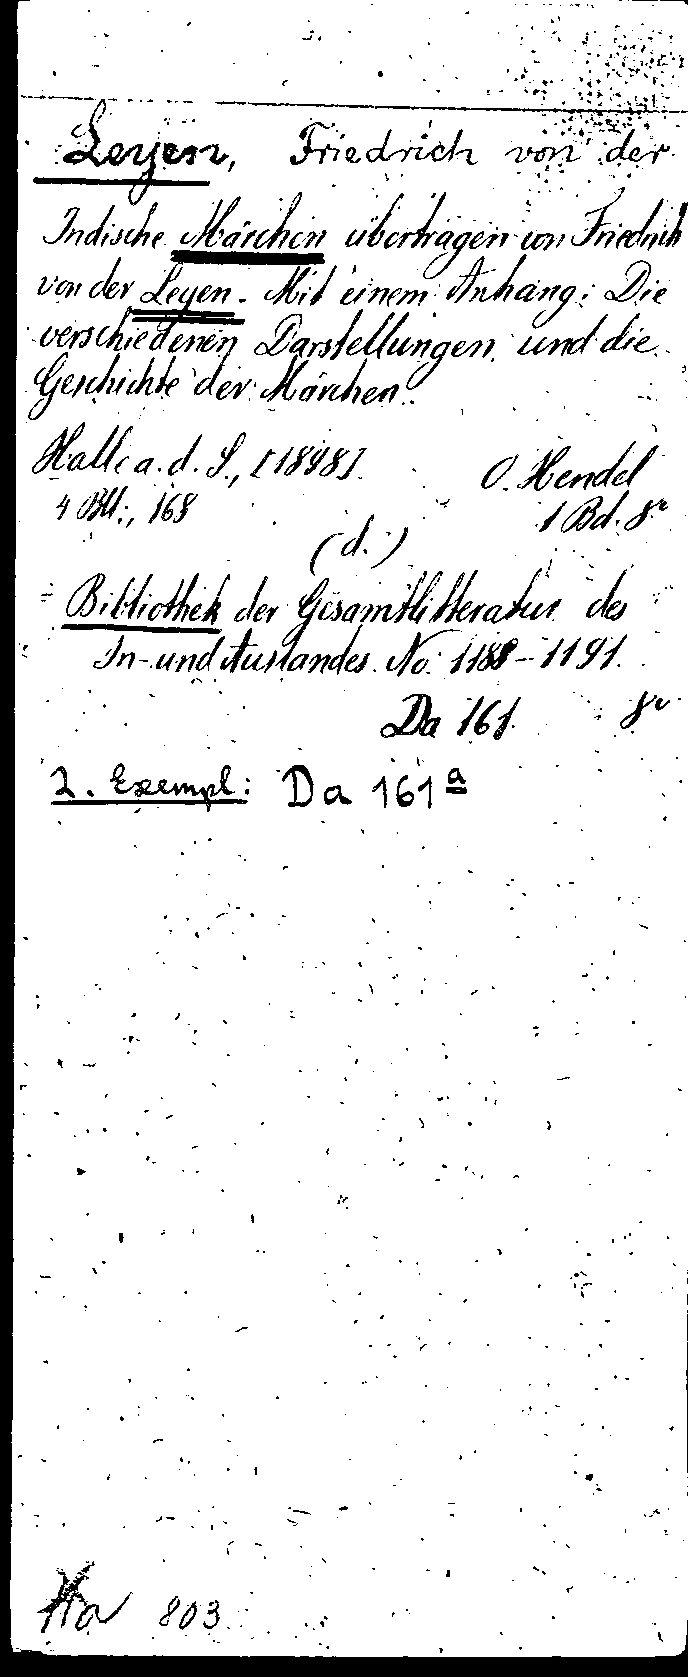 Leyen, Friedrich von der
Indische Märchen übertragen von Friedrich
von der Leyen. Mit einem Anhang: Die
verschiedenen Darstellungen und die
Geschichte der Märchen.
Halle a. d. S., [1898]. O. Hendel
4 Bll., 168 1 Bd. 8°
(d.)
= Bibliothek der Gesamtlitteratur des
In- und Auslandes. No. 1188-1191.
Da 161. 8°
2. Exempl: Da 161a
803